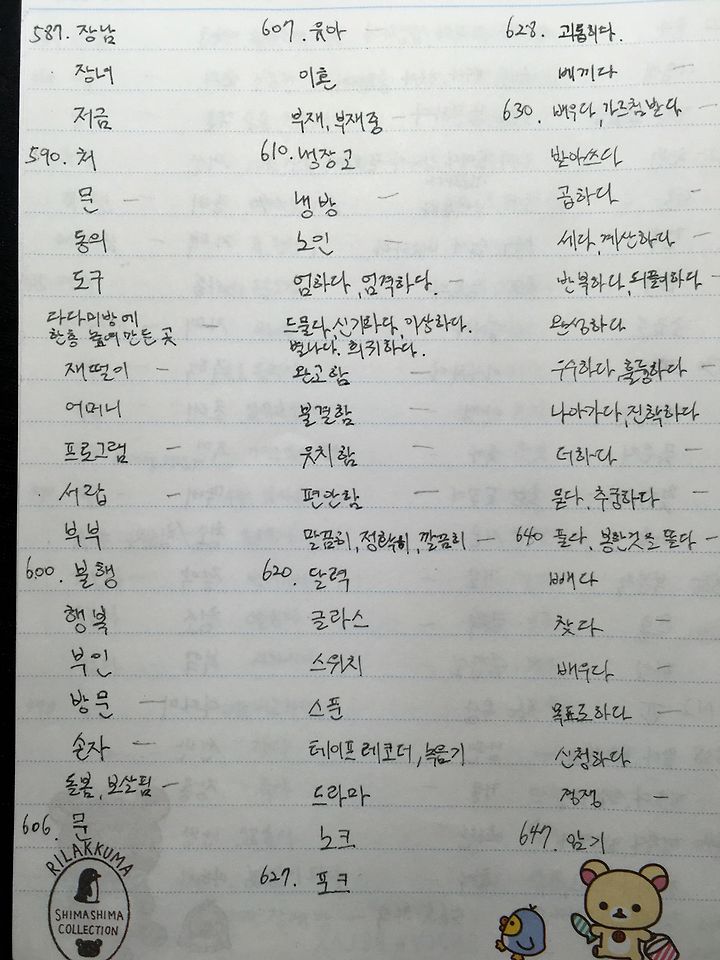 587. 장남
장녀
저금
590. 처
문 -
동의
도구
다다미방에 -
한층 높여 만든 곳
재떨이 -
어머니
프로그램 -
서랍 -
부부
600. 불행
행복
부인
방문 -
손자 -
돌봄, 보살핌 -
606. 문
RILAKKUMA
SHIMASHIMA
COLLECTION
607. 유아
이혼
부재, 부재중 -
610. 냉장고
냉방 -
노인 -
엄하다, 엄격하다. -
드물다, 신기하다, 이상하다.
별나다. 희귀하다.
완고함 -
불결함 -
웃치함 -
편안함 -
말끔히, 정확히, 깔끔히 -
620. 달력
글라스
스위치
스푼
테이프레코더, 녹음기
드라마
노크
627. 포크
628. 괴롭히다.
베끼다 -
630. 배우다, 가르침받다 -
받아쓰다
곱하다 -
세다, 계산하다 -
반복하다, 되풀이하다 -
완성하다
우수하다, 훌륭하다 -
나아가다, 진학하다
더하다 -
묻다, 추궁하다 -
640 풀다, 봉한것을 뜯다 -
빼다
찾다 -
배우다
목표로하다 -
신청하다
경쟁 -
647. 암기